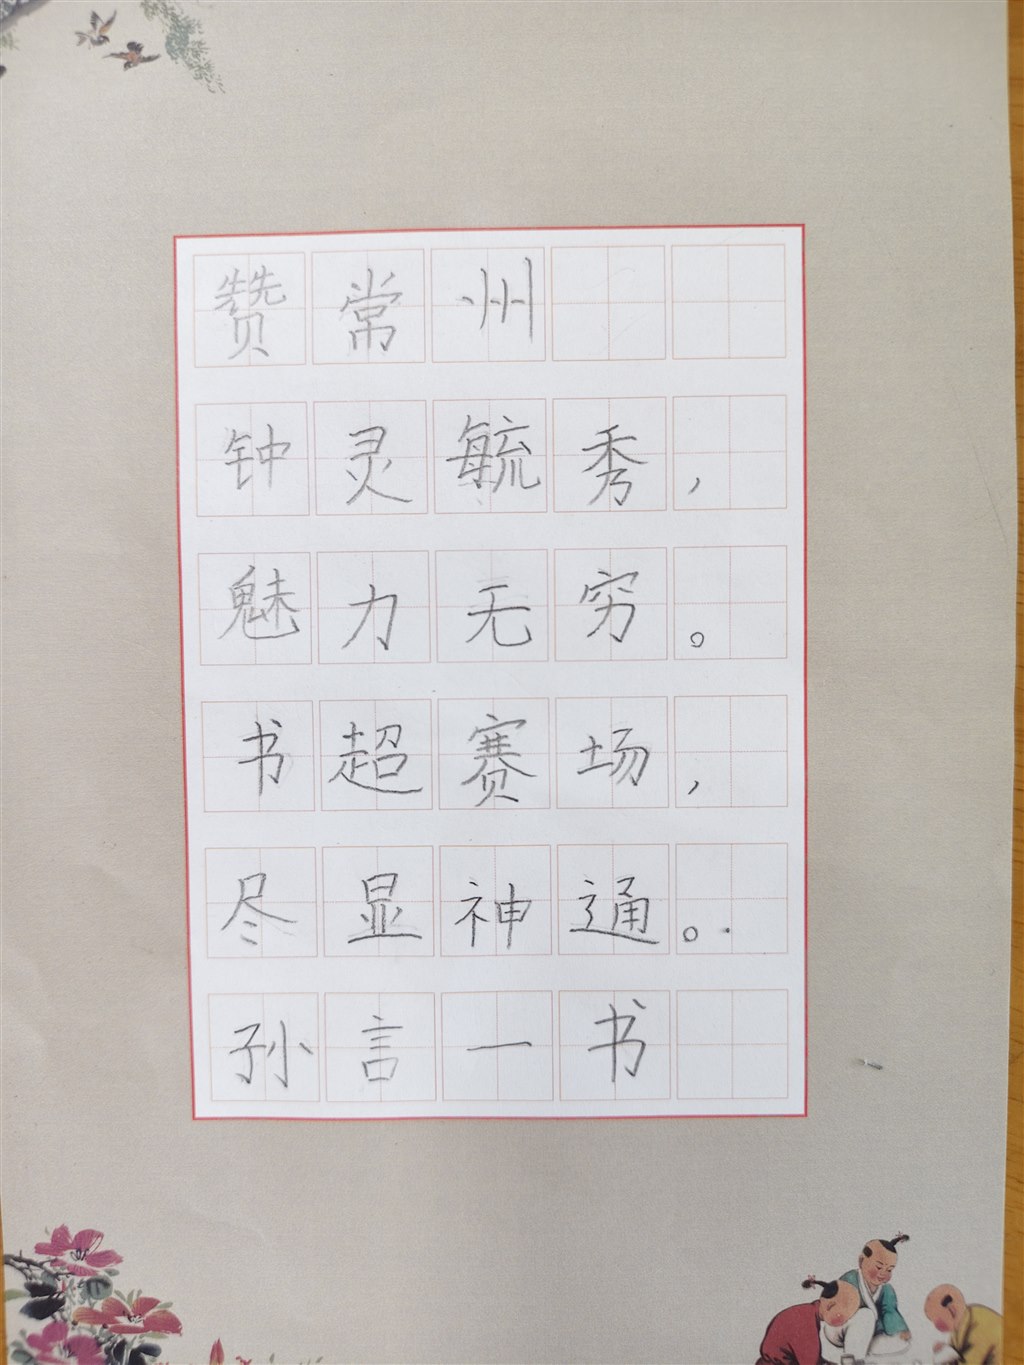 赞常州
钟灵毓秀，
魅力无穷。
书超赛场，
尽显神通。
孙言一书